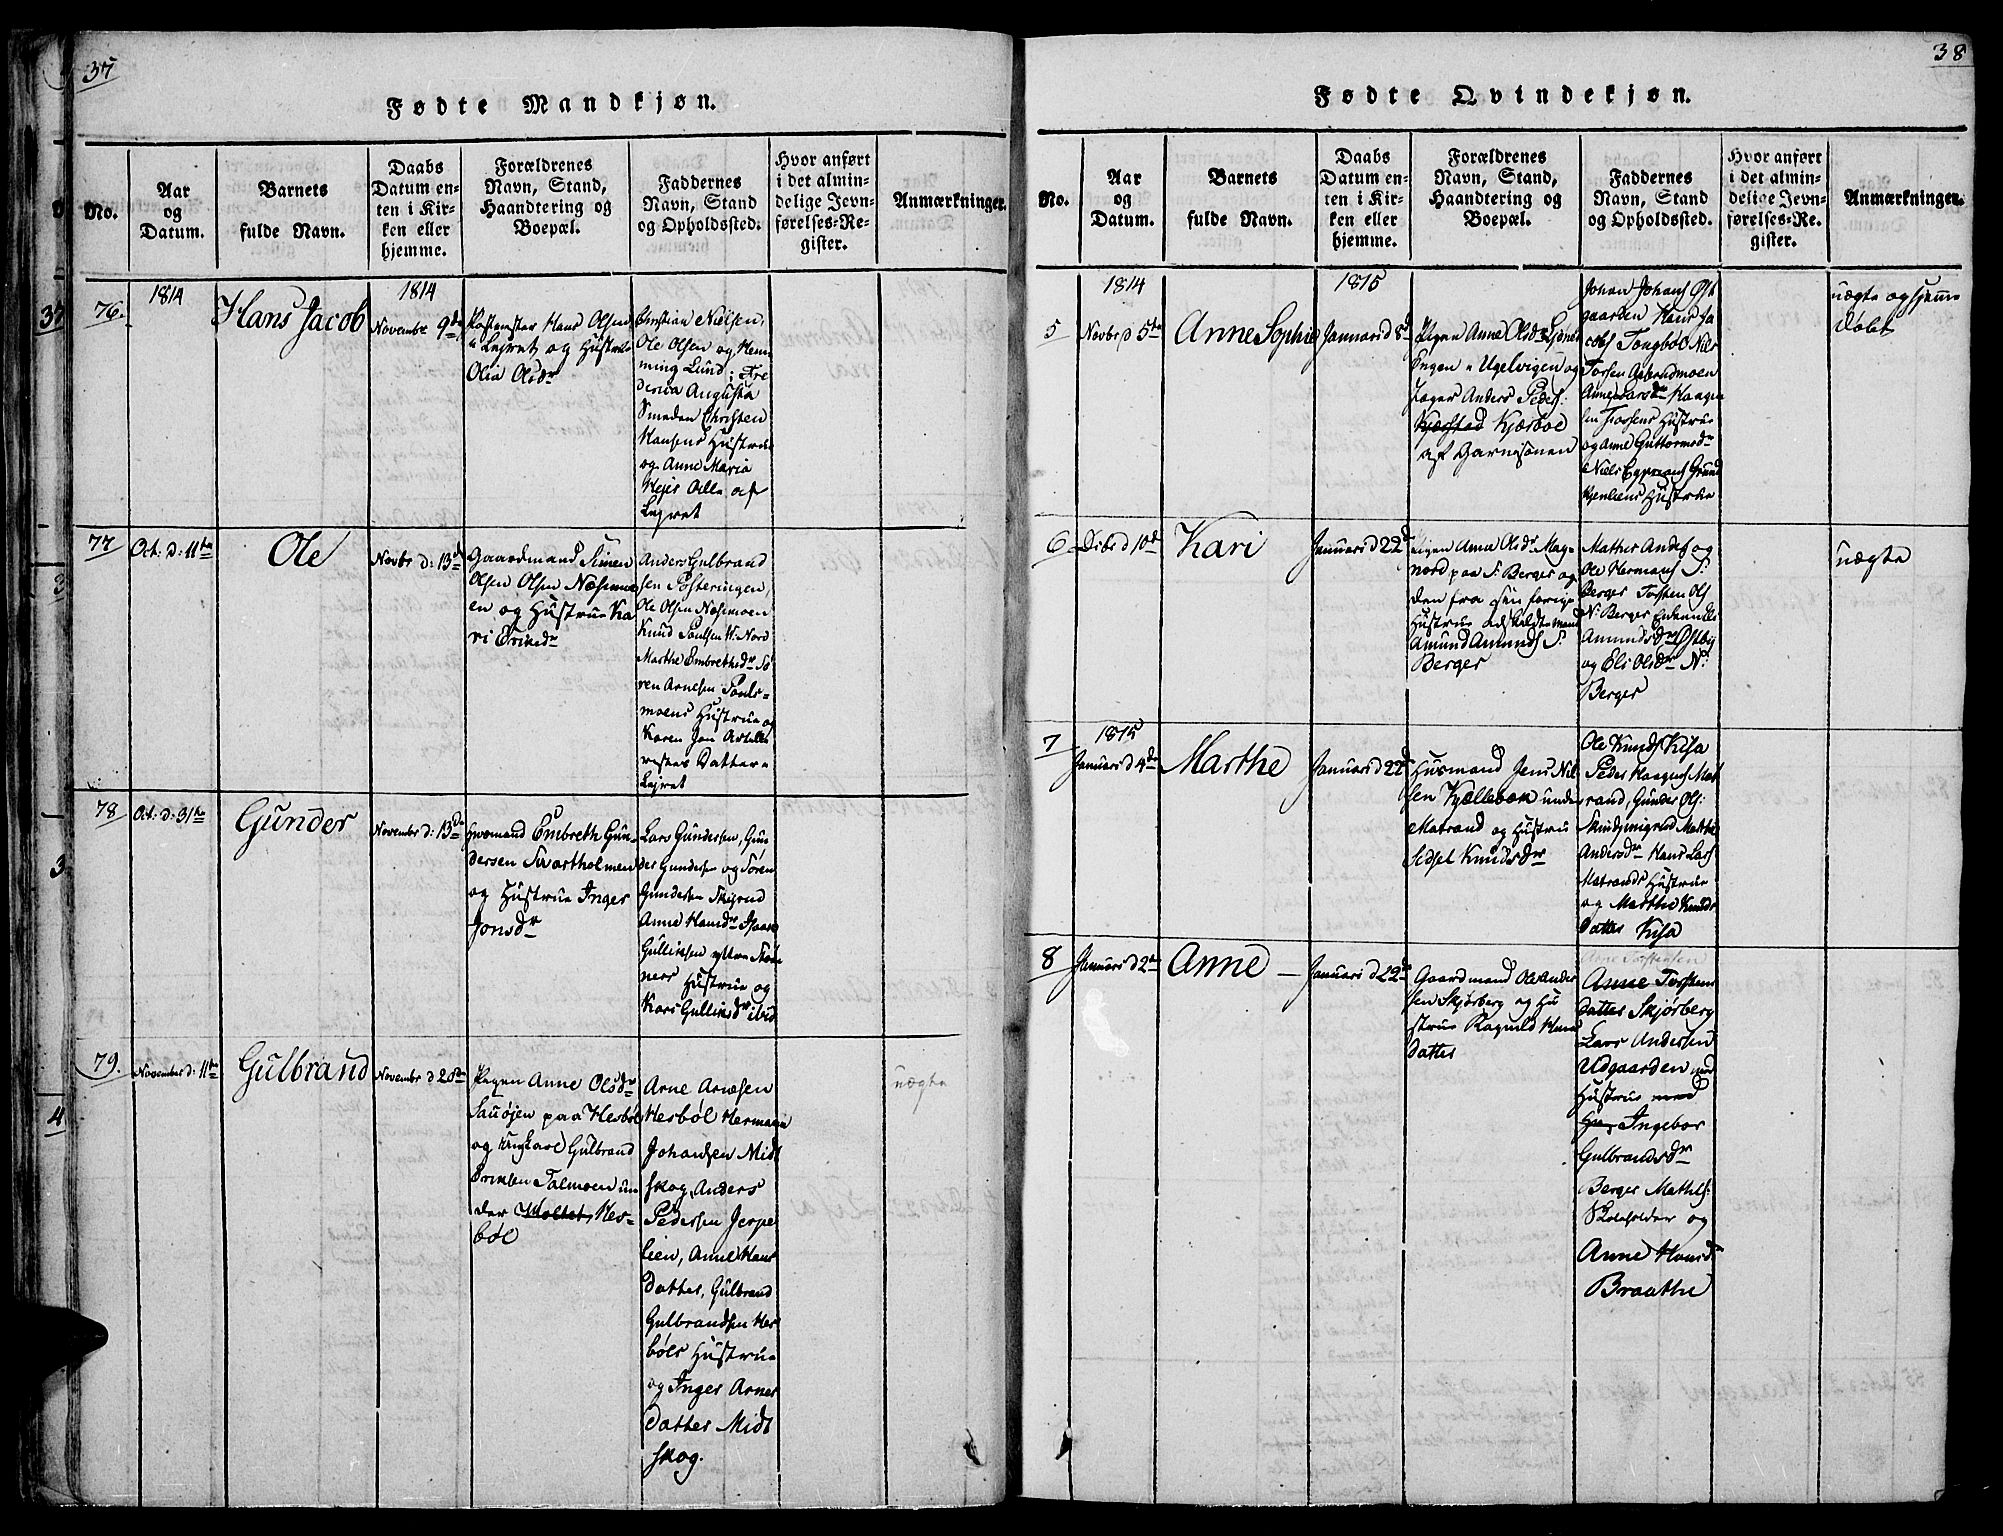 37
Fødte Mandkjøn.
No.
Aar
og
Datum.
Barnets
fulde Navn.
Daabs
Datum en-
ten i Kir-
ken eller
hjemme.
Forældrenes
Navn, Stand,
Haandtering og
Boepæl.
Faddernes
Navn, Stand
og Opholdssted.
Hvor anført
i det almin-
delige Jevn-
førelses-Re-
gister.
Anmærkninger.
76.
1814
Hans Jacob
1814
Novembr. 9de
Hans Olsen
Lejret og Hustrue
Olia Olsdr
Christian Nielsen,
Ole Olsen og Hen-
ning Lund; Fre
derica Augusta
Smeden Christen
Hansens Hustrue
og Anne Maria
Alle af
Lejret
77
Oct: d: 11te
Ole
Novbr d: 13de
Gaardmand Simen
Olsen Olsen Næsmo-
en og Hustrue Ka
ri Eriksdr
Anders Gulbrand
sen Posteringen,
Ole Olsen Næsmoen
Knud Poulsen N: Nord
Marthe Embrethsdr Sö
ren Arnesen Pouls-
moens Hustrue og
Karen Jon Artille
ristes Datter
Lejret
78
Oct: d: 31te
Gunder
Novembr d: 13de
Huusmand Embreth Gun-
dersen Svartholmen
og Hustrue Inger
Jonsdr
Lars Gundersen, Gun
der Gundersen og Sören
Gundersen Skyrud
Anne Hansdr
Gullichsen ytre
ners Hustrue og
Kari Gullichsdr ibid
79.
November d: 11te
Gulbrand
Novembr d 20de
Pigen Anne Olsdr
Sauøjen paa Hesbøl
og Ungkarl Gulbrand
Eriksen Talmoen un
der Hes-
bøl
Arne Arnesen
Hesbøl Herman
Johansen Midt
skog, Anders
Pedersen Jerpe
lien, Anne Hans
Datter, Gulbrand
Gulbrandsen Hes
böls Hustrue
og Inger Arnes
Datter Midt
skog.
uægte
38
Fødte Qvindekjøn.
No.
Aar
og
Datum.
Barnets
fulde Navn.
Daabs
Datum en-
ten i Kir-
ken eller
hjemme.
Forældrenes
Navn, Stand,
Haandtering og
Boepæl.
Faddernes
Navn, Stand
og Opholdssted.
Hvor anført
i det almin-
delige Jevn-
førelses-Re-
gister.
Anmærkninger.
5
1814
Novbr d 5te
Anne Sophie
1815
Januari d 8de
Pigen Anne Olsdr
Engen Ugelvigen og
Jæger Anders Peders:
Kjærboe
af Garnisonen
Johan Johans Øst
gaarden Hans Ja
cobs Tongböl Niels
Torsen Aabrudmoen
Anne Larsdr Haagen
Hustrue
og Anne Guttormsdr
Niels
Hustrue
uægte og hjemme
døbt
6
Decbr d 10de
Kari
Januari d 22de
Pigen Anne Olsdr Mag-
nord paa S: Berger og
den fra sin forrige
Hustrue adskildte Mand
Amund Amunds S:
Berger
Mathes Anders og
Ole Hermans S:
Berger Torsten Ols
N: Berger
Amundsdr Østby
og Eli Olsdr N:
Berger
uægte
7
1815
Januari d 4de
Marthe
Januari d 22de
Husmand Jens Nil-
sen Kjellebæk under
Matrand og Hustru
Sidsel Knudsdr
Ole Knuds Kisa
Peder Haagens Mat
rand, Gunder Ols:
Marthe
Andersdr Hans Lars
Matrands Hustrue
og Marthe Knuds
Datter Kisa
8
Januari d 2de
Anne
Januari d 22de
Gaardmand Ole Ander
sen Skjørberg og Hu
strue Ragnild Hans
Datter
Anne Torstensen
Anne Torstens
Datter Skjørberg
Lars Andersen
Udgaarden med
Hustrue med
Ingebor
Gulbrandsdr
Berger Mathis
Skoleholder og
Anne Hansdr
Braathe